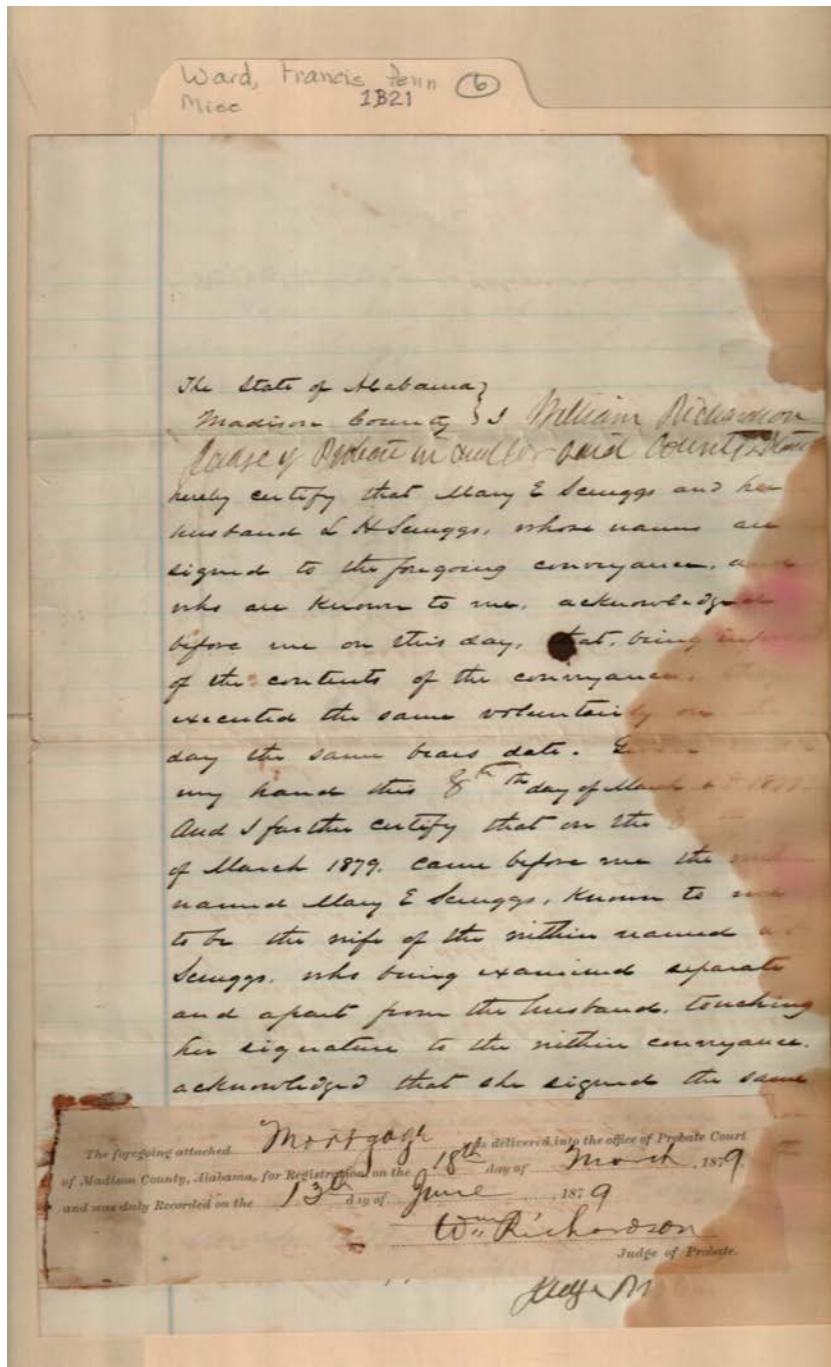 Ward, Francis Fenn 6
Misc 1B21
The State of Alabama}
Madison County } I William Richardson
Judge of Probate in and for said County & State
hereby certify that Mary E Scruggs and her
husband L H Scruggs, whose names are
signed to the foregoing conveyance, and
who are known to me, acknowledged
before me on this day, that, being
of the contents of the conveyance,
executed the same voluntarily on
day the same bears date.
my hand this 8th th day of March
And I further certify that on the
of March 1879. came before me the
named Mary E Scruggs, known to me
to be the wife of the within named
Scruggs, who being examined separate
and apart from the husband, touching
her signature to the within conveyance,
acknowledged that she signed the same
The foregoing attached Mortgage was delivered into the office of Probate Court
of Madison County, Alabama, for Registration on the 18th day of March, 1879.
and was duly Recorded on the 13th day of June, 1879
Wm Richardson
Judge of Probate.
Judge